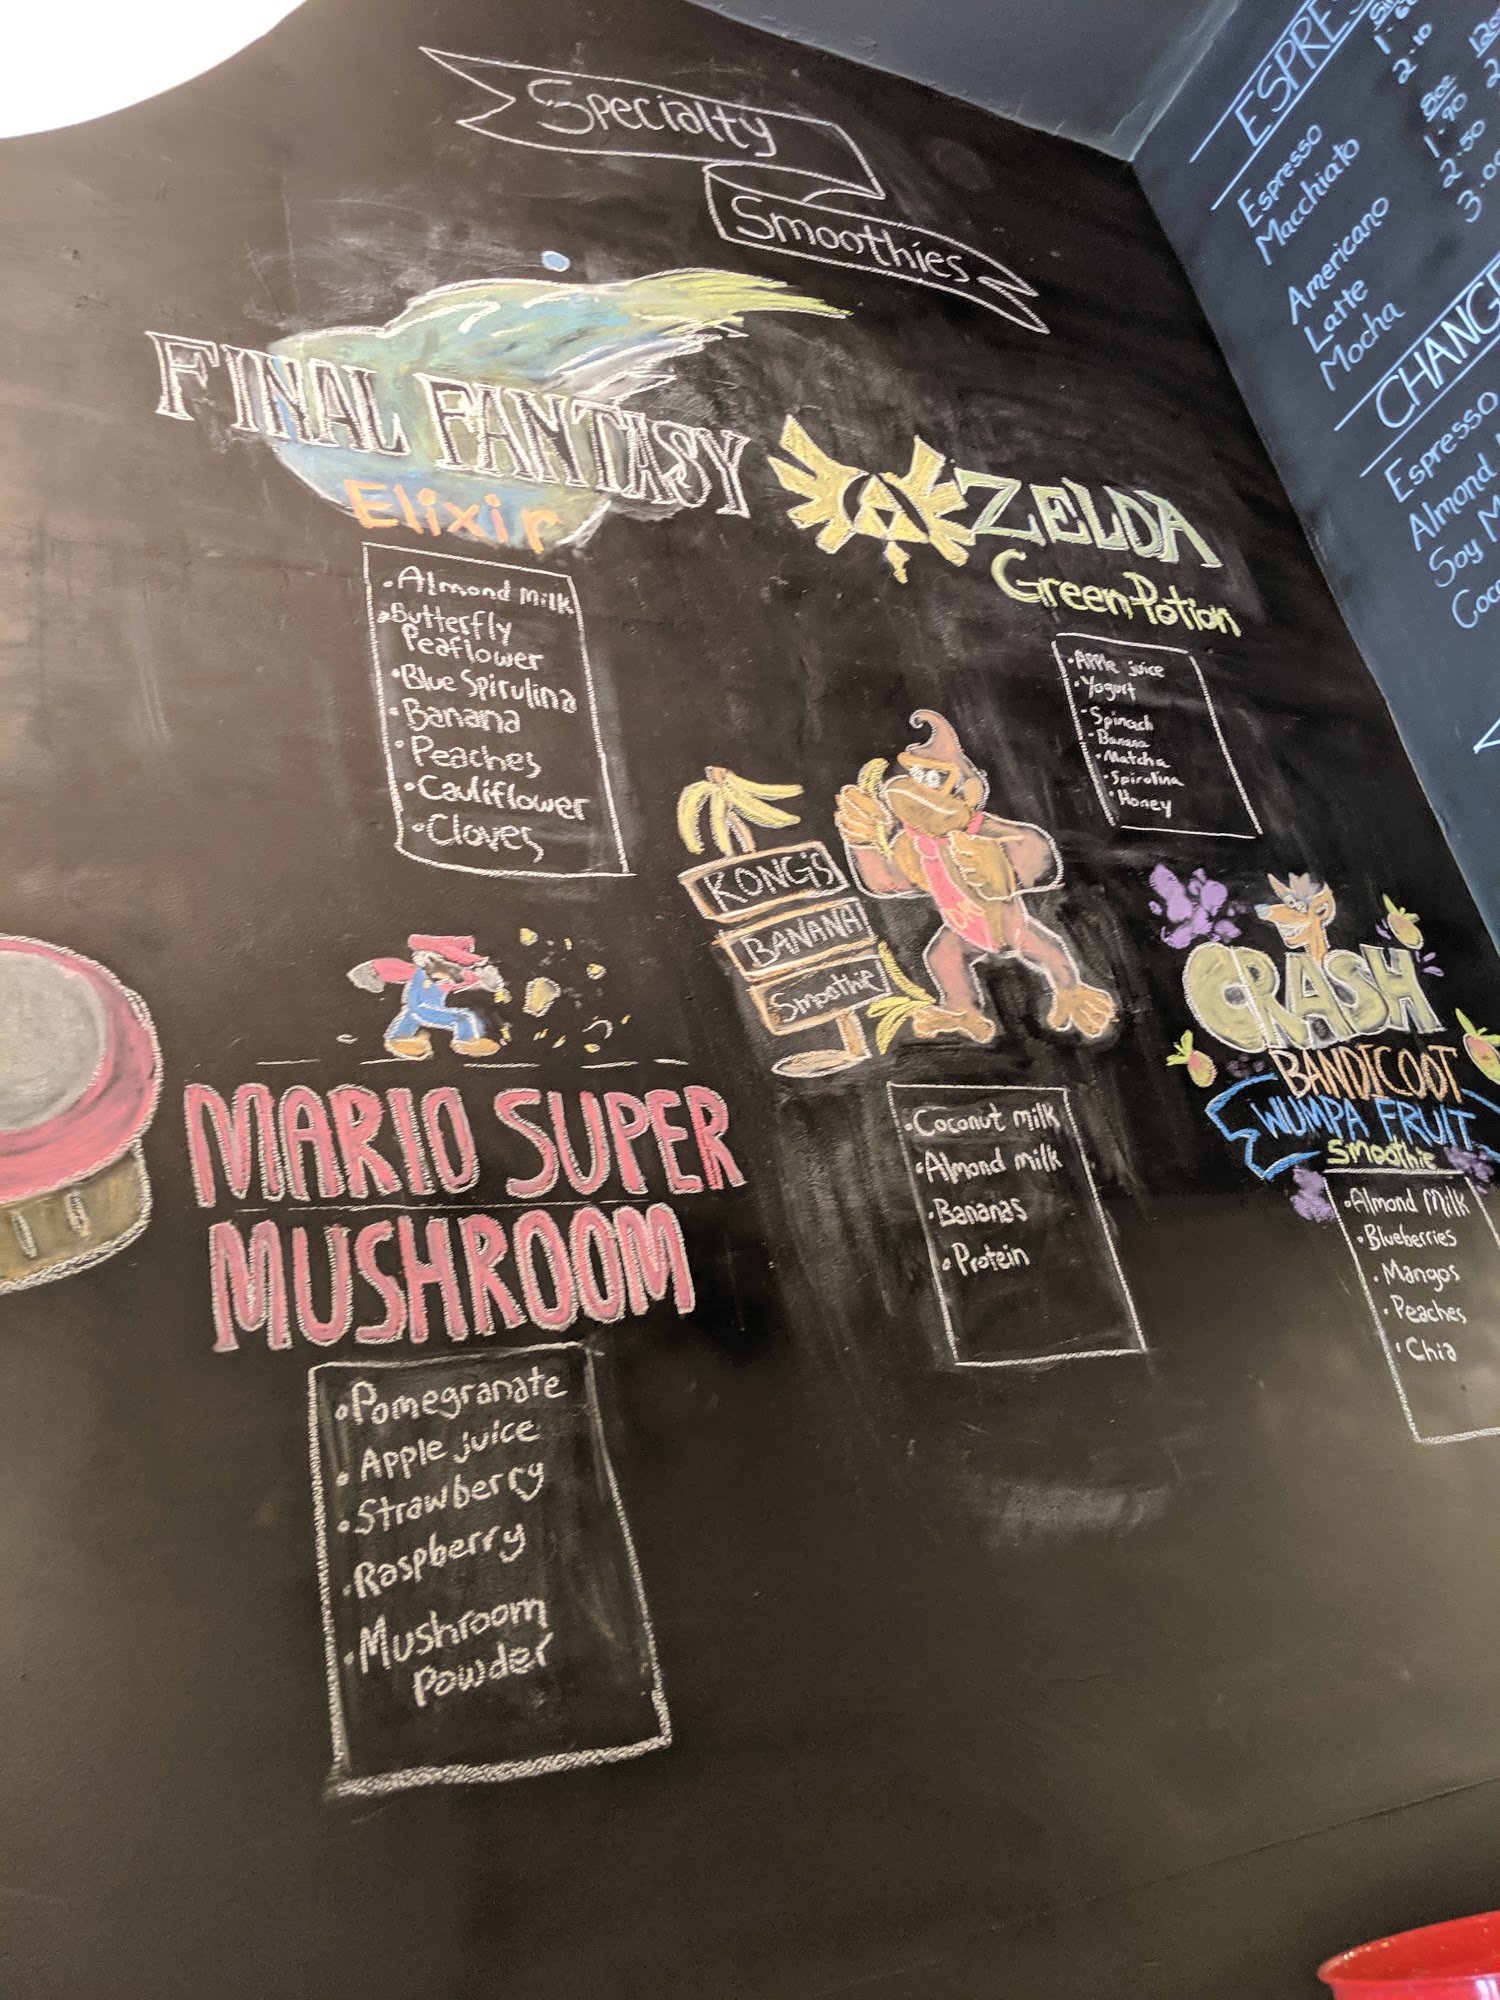 Specialty
Smoothies
FINAL FANTASY
Elixir
• Almond milk
• Butterfly
Peaflower
• Blue Spirulina
• Banana
• Peaches
• Cauliflower
• Cloves
ZELDA
Green Potion
• Apple juice
• Yogurt
• Spinach
• Banana
• Matcha
• Spirolina
• Honey
KONG'S
BANANA
Smoothie
DK
• Coconut milk
• Almond milk
• Bananas
• Protein
CRASH
BANDICOOT
WUMPA FRUIT
Smoothie
• Almond Milk
• Blueberries
• Mangos
• Peaches
• Chia
MARIO SUPER
MUSHROOM
• Pomegranate
• Apple juice
• Strawberry
• Raspberry
• Mushroom
Powder
Espresso
Macchiato 2.10
8oz
Americano 1.90
Latte 2.50
Mocha
Espresso
Almond
Soy